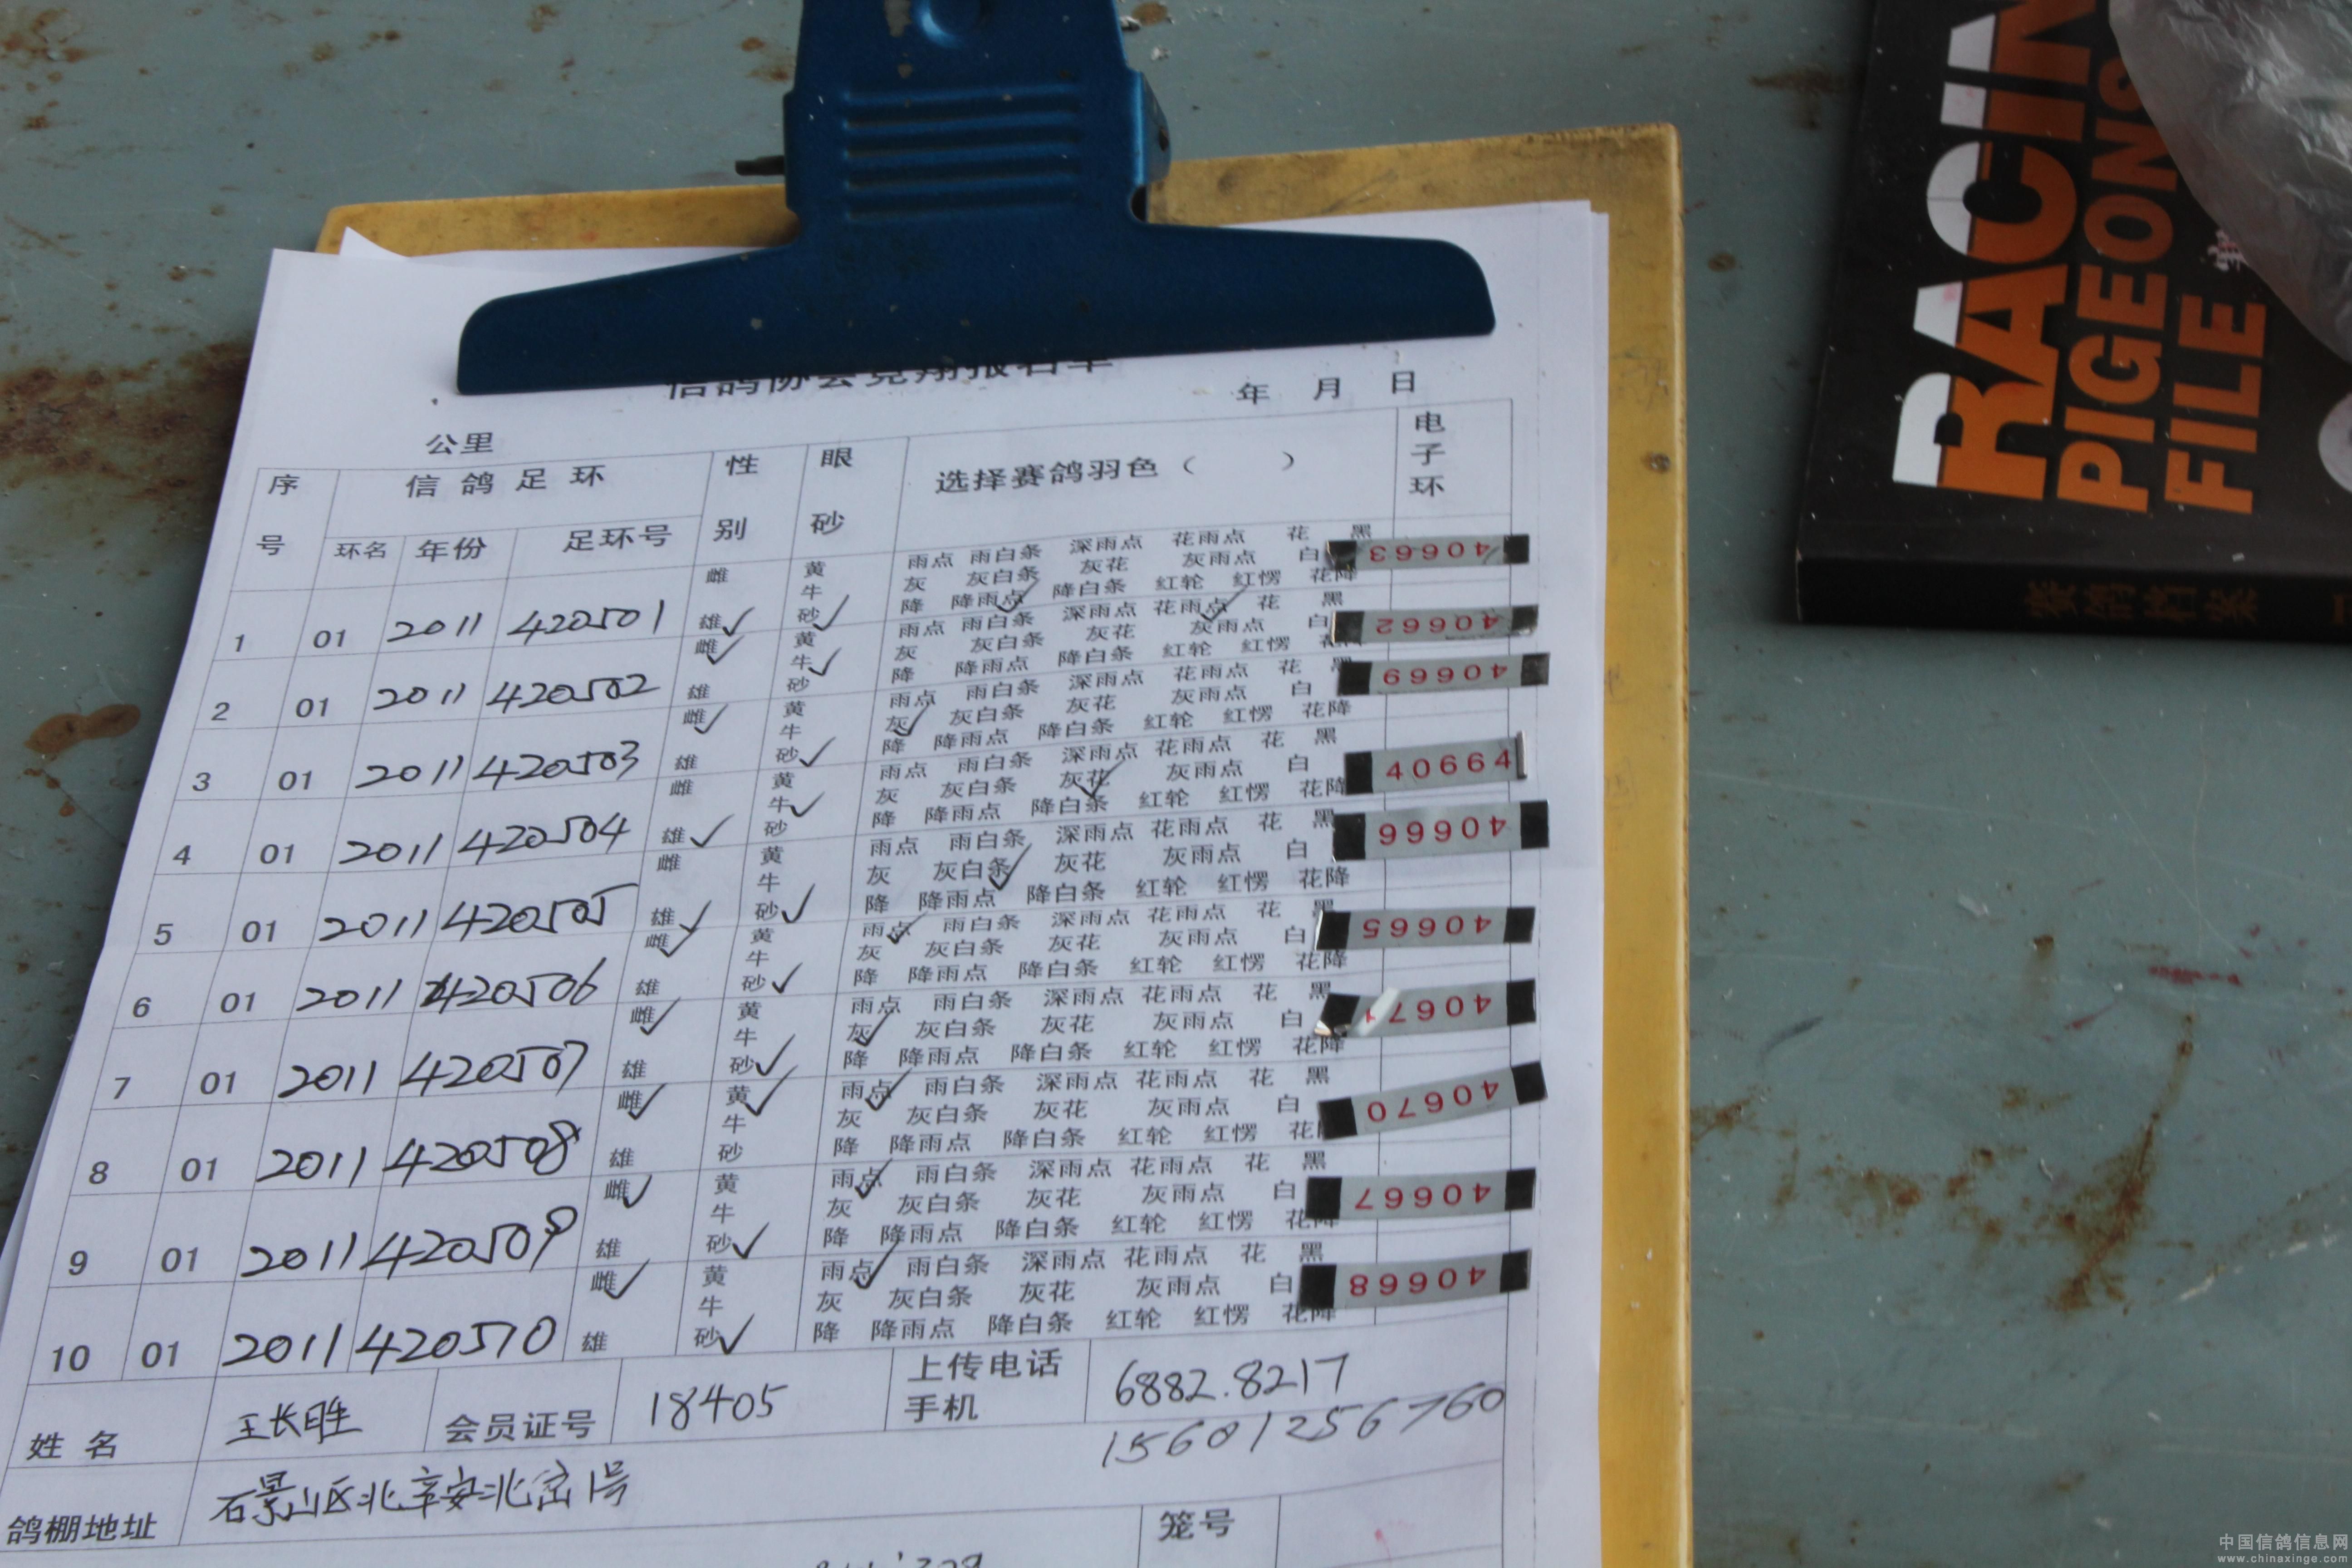 信鸽协会竞翔报名单
年 月 日
公里
序号 信鸽足环 性别 眼砂 选择赛鸽羽色( ) 电子环
环名 年份 足环号
雌 黄 雨点 雨白条 深雨点 花雨点 花 黑
牛 灰 灰白条 灰花 灰雨点 白 40663
1 01 2011 420501 雄✓ 砂✓ 降 降雨点 降白条 红轮 红愣 花降
雌✓ 黄 雨点 雨白条 深雨点 花雨点 花 黑
牛✓ 灰 灰白条 灰花 灰雨点 白 40662
2 01 2011 420502 雄 砂 降 降雨点 降白条 红轮 红愣 花降
雌✓ 黄 雨点 雨白条 深雨点 花雨点 花 黑 40669
牛 灰 灰白条 灰花 灰雨点 白
3 01 2011 420503 雄 砂✓ 降 降雨点 降白条 红轮 红愣 花降
雌 黄 雨点 雨白条 深雨点 花雨点 花 黑
牛✓ 灰 灰白条 灰花 灰雨点 白 40664
4 01 2011 420504 雄✓ 砂 降 降雨点 降白条 红轮 红愣 花降
雌 黄 雨点 雨白条 深雨点 花雨点 花 黑 40666
牛 灰 灰白条 灰花 灰雨点 白
5 01 2011 420505 雄✓ 砂✓ 降 降雨点 降白条 红轮 红愣 花降
雌✓ 黄 雨点 雨白条 深雨点 花雨点 花 黑 40665
牛 灰 灰白条 灰花 灰雨点 白
6 01 2011 420506 雄 砂✓ 降 降雨点 降白条 红轮 红愣 花降
雌✓ 黄 雨点 雨白条 深雨点 花雨点 花 黑 40671
牛 灰 灰白条 灰花 灰雨点 白
7 01 2011 420507 雄 砂✓ 降 降雨点 降白条 红轮 红愣 花降
雌✓ 黄✓ 雨点 雨白条 深雨点 花雨点 花 黑
牛 灰 灰白条 灰花 灰雨点 白 40670
8 01 2011 420508 雄 砂 降 降雨点 降白条 红轮 红愣 花降
雌✓ 黄 雨点 雨白条 深雨点 花雨点 花 黑
牛 灰 灰白条 灰花 灰雨点 白 40667
9 01 2011 420509 雄 砂✓ 降 降雨点 降白条 红轮 红愣 花降
雌✓ 黄 雨点 雨白条 深雨点 花雨点 花 黑
牛 灰 灰白条 灰花 灰雨点 白 40668
10 01 2011 420510 雄 砂✓ 降 降雨点 降白条 红轮 红愣 花降
姓名 王长胜 会员证号 18405 上传电话 6882.8217
手机 15601256760
鸽棚地址 石景山区北辛安北岔1号
笼号
RACIN
PIGEONS
FILE
赛鸽档案
中国信鸽信息网
www.chinaxinge.com